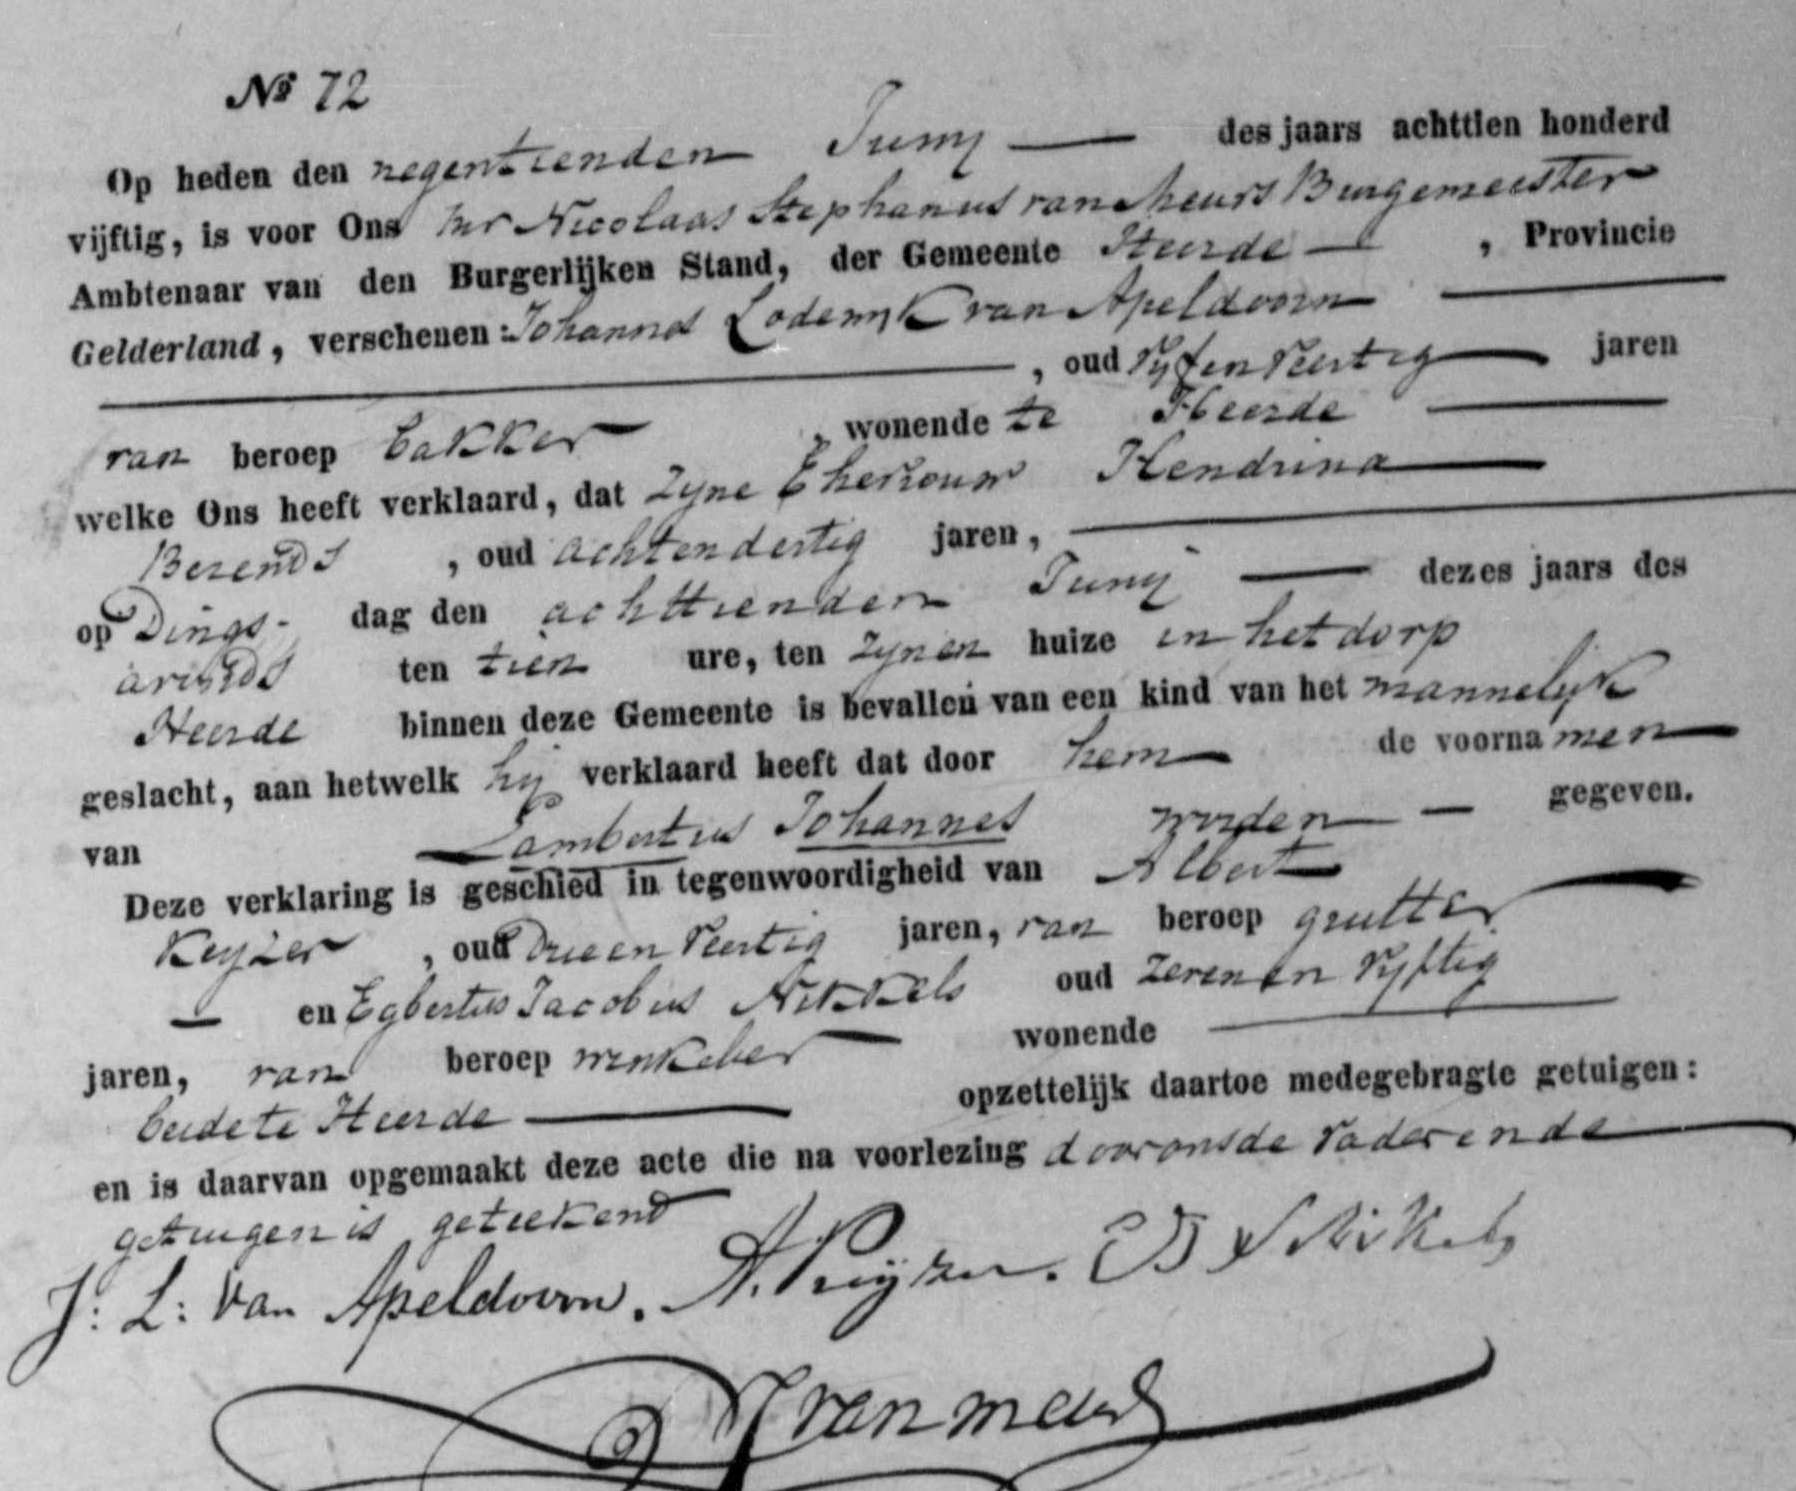 No 72
Op heden den negentienden Junij des jaars achttien honderd
vijftig, is voor Ons Mr Nicolaas Stephanus van Meurs Burgemeester
Ambtenaar van den Burgerlijken Stand, der Gemeente Heerde , Provincie
Gelderland, verschenen: Johannes Lodewijk van Apeldoorn
, oud Vijf en Veertig jaren
van beroep bakker , wonende te Heerde
welke Ons heeft verklaard, dat zijne Ehevrouw Hendrina
Berends , oud achtendertig jaren,
op Dings- dag den achttienden Junij dezes jaars des
avonds ten tien ure, ten zijnen huize in het dorp
Heerde binnen deze Gemeente is bevallen van een kind van het mannelijk
geslacht, aan hetwelk hij verklaard heeft dat door hem de voornamen
van Lambertus Johannes worden gegeven.
Deze verklaring is geschied in tegenwoordigheid van Albert
Keijzer , oud Drie en Veertig jaren, van beroep grutter
en Egbertus Jacobus Nikkels oud zeven en Vijftig
jaren, van beroep winkelier wonende
beide te Heerde opzettelijk daartoe medegebragte getuigen:
en is daarvan opgemaakt deze acte die na voorlezing door ons de Vader en de
getuigen is geteekend
J: L: van Apeldoorn. A. Keijzer. E J Nikkels
van Meurs